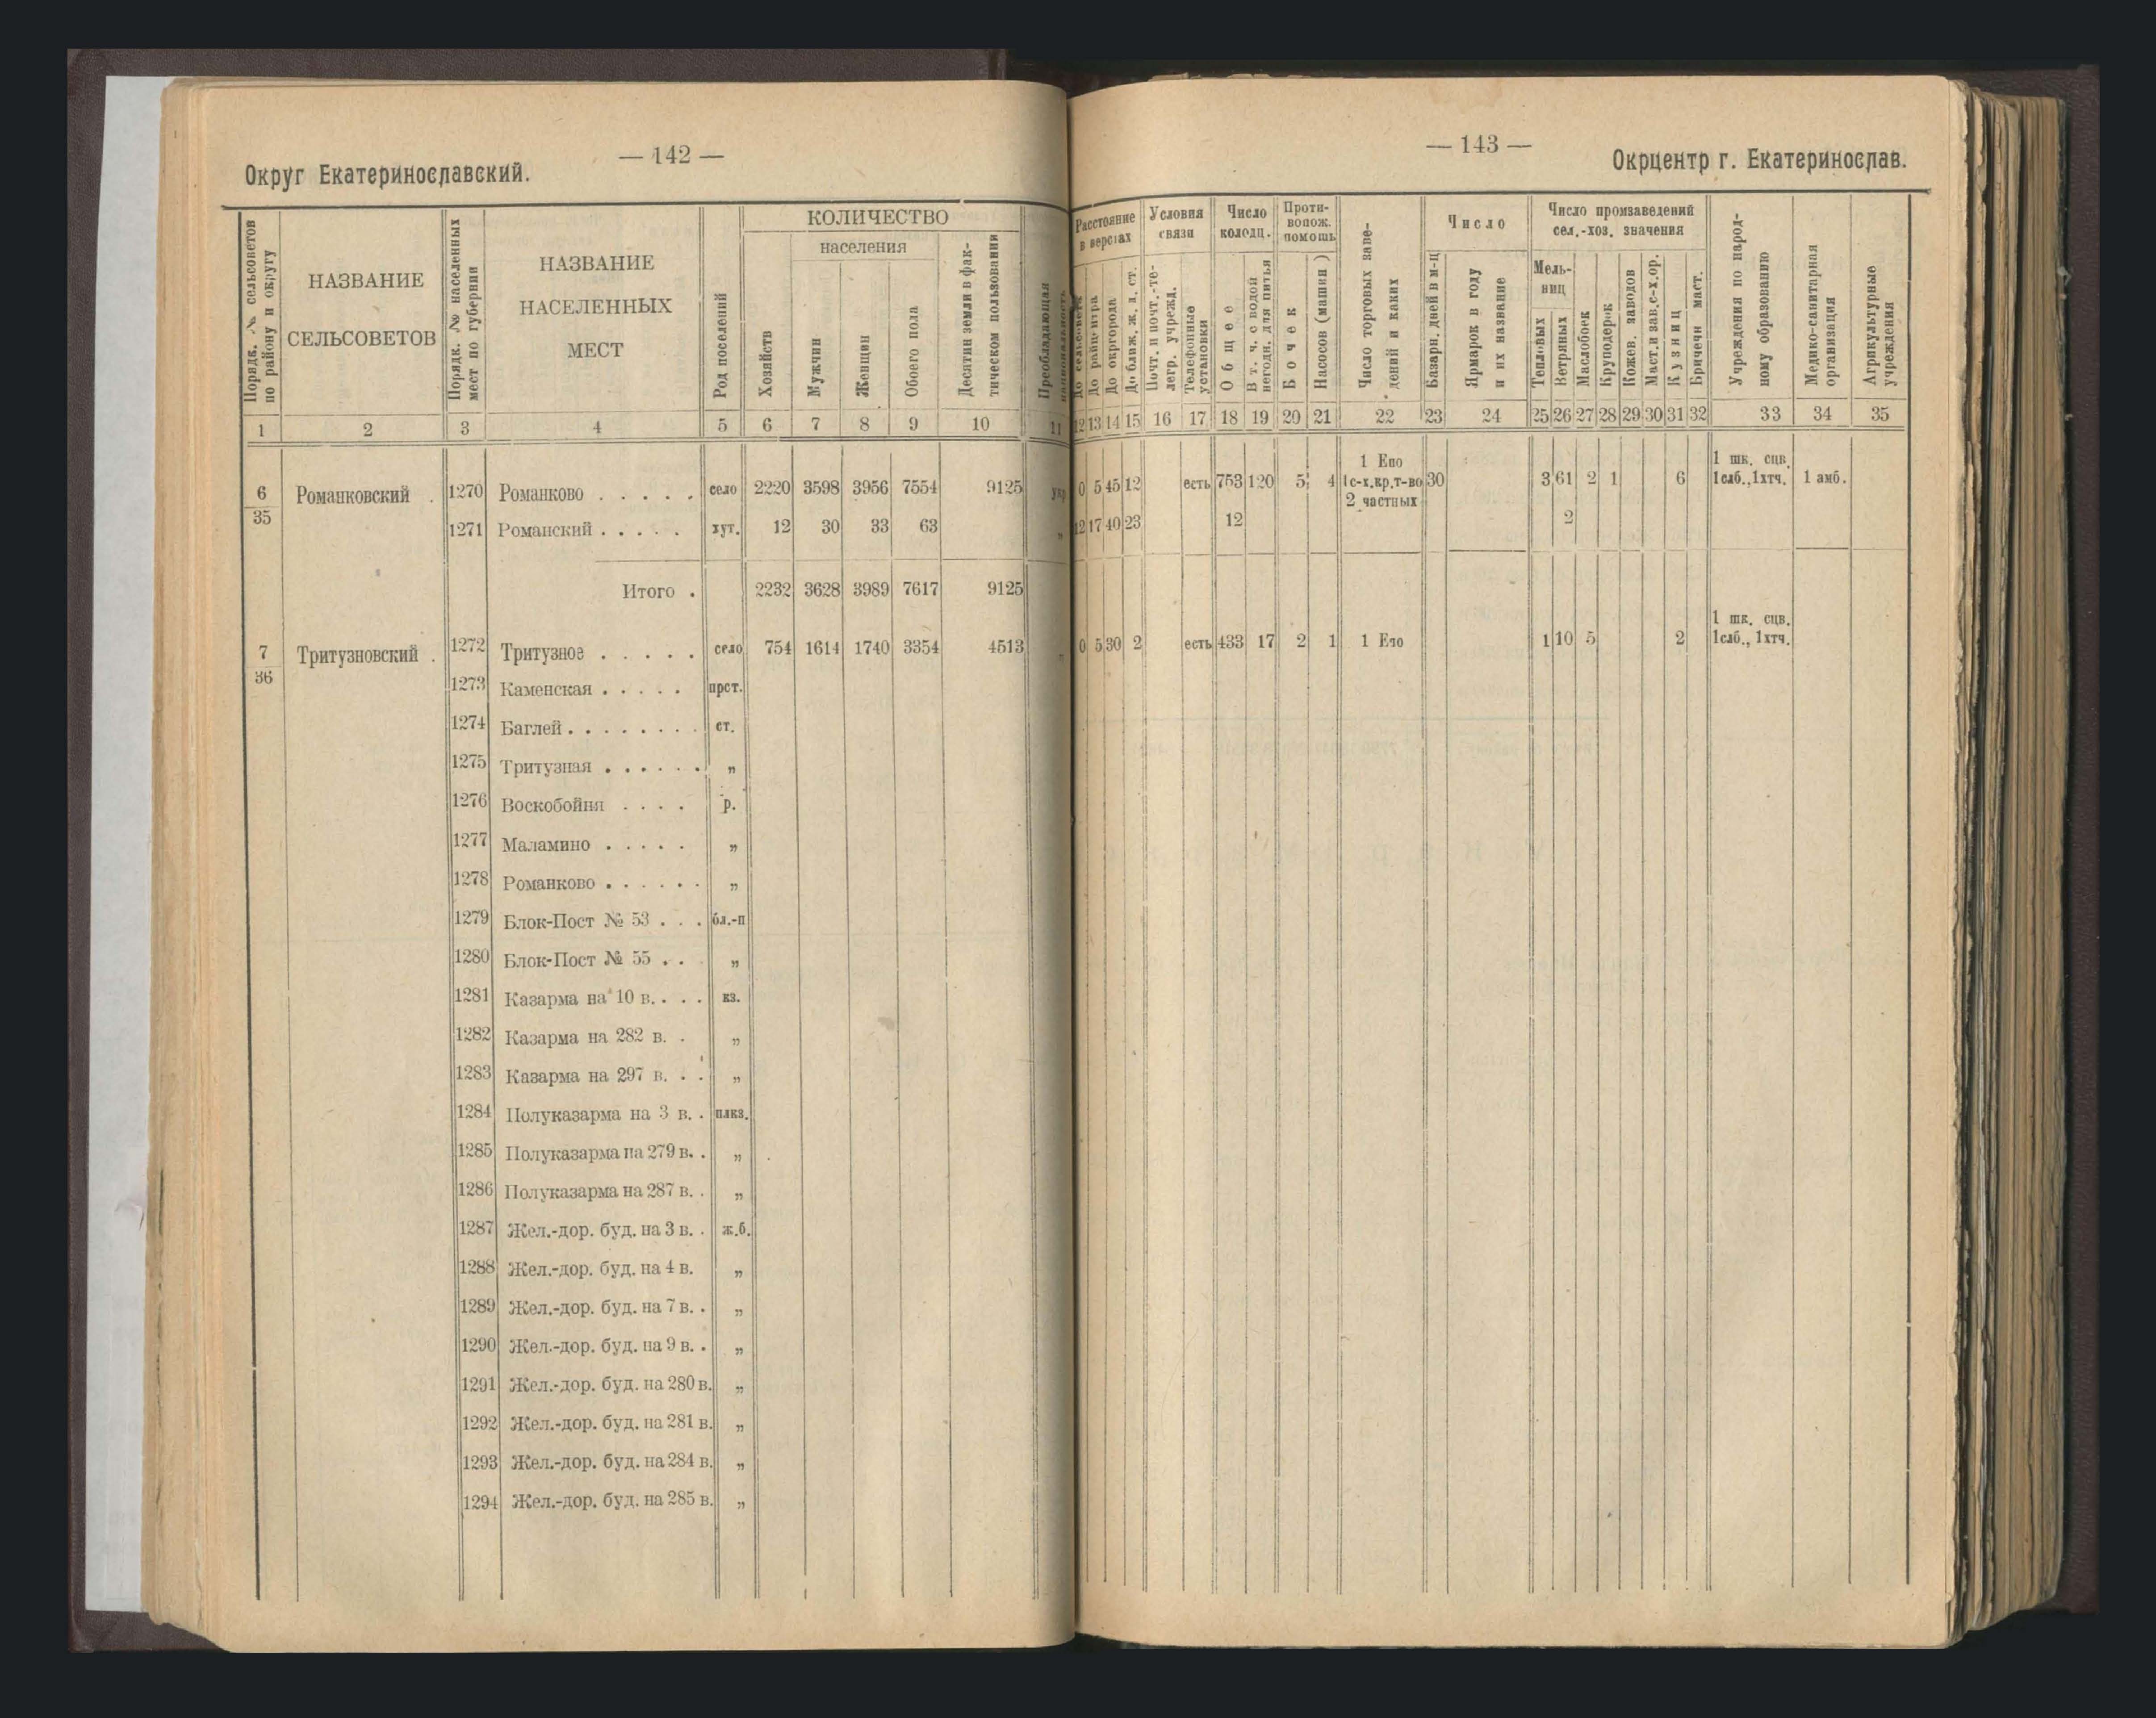 — 142 —
Округ Екатеринославский.
Порядк. № сельсоветов по району и округу
НАЗВАНИЕ СЕЛЬСОВЕТОВ
Порядк. № населенных мест по губернии
НАЗВАНИЕ НАСЕЛЕННЫХ МЕСТ
Род поселений
КОЛИЧЕСТВО
населения
Хозяйств
Мужчин
Женщин
Обоего пола
Десятин земли в фактическом пользовании
Преобладающая национальность
1 2 3 4 5 6 7 8 9 10 11
6/35 Романковский . 1270 Романково . . . . . село 2220 3598 3956 7554 9125 укр
1271 Романский . . . . . хут. 12 30 33 63 „
Итого . 2232 3628 3989 7617 9125
7/36 Тритузновский . 1272 Тритузное . . . . . село 754 1614 1740 3354 4513 „
1273 Каменская . . . . . прст.
1274 Баглей . . . . . . . . ст.
1275 Тритузная . . . . . . „
1276 Воскобойня . . . . р.
1277 Маламино . . . . . „
1278 Романково . . . . . . „
1279 Блок-Пост № 53 . . . бл.-п
1280 Блок-Пост № 55 . . „
1281 Казарма на 10 в. . . . кз.
1282 Казарма на 282 в. . „
1283 Казарма на 297 в. . . „
1284 Полуказарма на 3 в. . плкз.
1285 Полуказарма на 279 в. . „
1286 Полуказарма на 287 в. . „
1287 Жел.-дор. буд. на 3 в. . ж.б.
1288 Жел.-дор. буд. на 4 в. „
1289 Жел.-дор. буд. на 7 в. . „
1290 Жел.-дор. буд. на 9 в. . „
1291 Жел.-дор. буд. на 280 в. „
1292 Жел.-дор. буд. на 281 в. „
1293 Жел.-дор. буд. на 284 в. „
1294 Жел.-дор. буд. на 285 в. „
— 143 —
Окрцентр г. Екатеринослав.
Расстояние в верстах
До сельсовета
До райцентра
До окргорода
До ближ. ж. д. ст.
Условия связи
Почт. и почт.-телегр. учрежд.
Телефонные установки
Число колодц.
Общее
В т. ч. с водой негодн. для питья
Противопож. помощь
Бочек
Насосов (машин)
Число торговых заведений и каких
Число
Базарн. дней в м-ц
Ярмарок в году и их название
Число промзаведений сел.-хоз. значения
Мельниц
Тепловых
Ветряных
Маслобоек
Круподерок
Кожев. заводов
Маст. и зав. с-х. ор.
Кузниц
Бричечн маст.
Учреждения по народному образованию
Медико-санитарная организация
Агрикультурные учреждения
12 13 14 15 16 17 18 19 20 21 22 23 24 25 26 27 28 29 30 31 32 33 34 35
0 5 45 12 есть 753 120 5 4 1 Епо 1с-х.кр.т-во 2 частных 30 3 61 2 1 6 1 шк. сцв. 1слб., 1хтч. 1 амб.
12 17 40 23 12 2
0 5 30 2 есть 433 17 2 1 1 Епо 1 10 5 2 1 шк. сцв. 1слб., 1хтч.